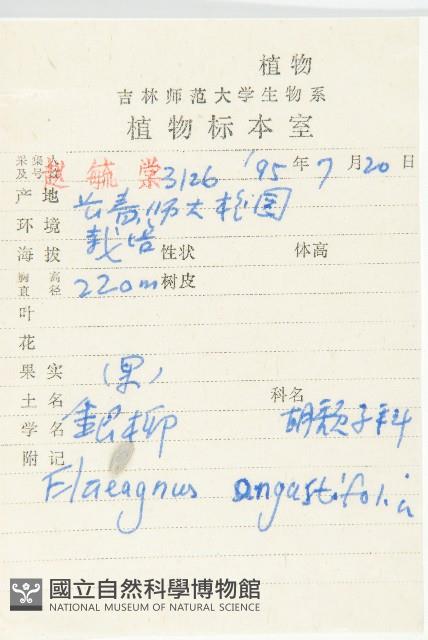 植物
吉林师范大学生物系
植物标本室
采集人及号数 赵毓棠 3126 '95年7月20日
产地 长春师大校园
环境 栽培
海拔 220m 性状 体高
胸高直径 树皮
叶
花
果实 (果)
土名 銀柳 科名 胡颓子科
学名
附记
Elaeagnus angastifolia
國立自然科學博物館
NATIONAL MUSEUM OF NATURAL SCIENCE